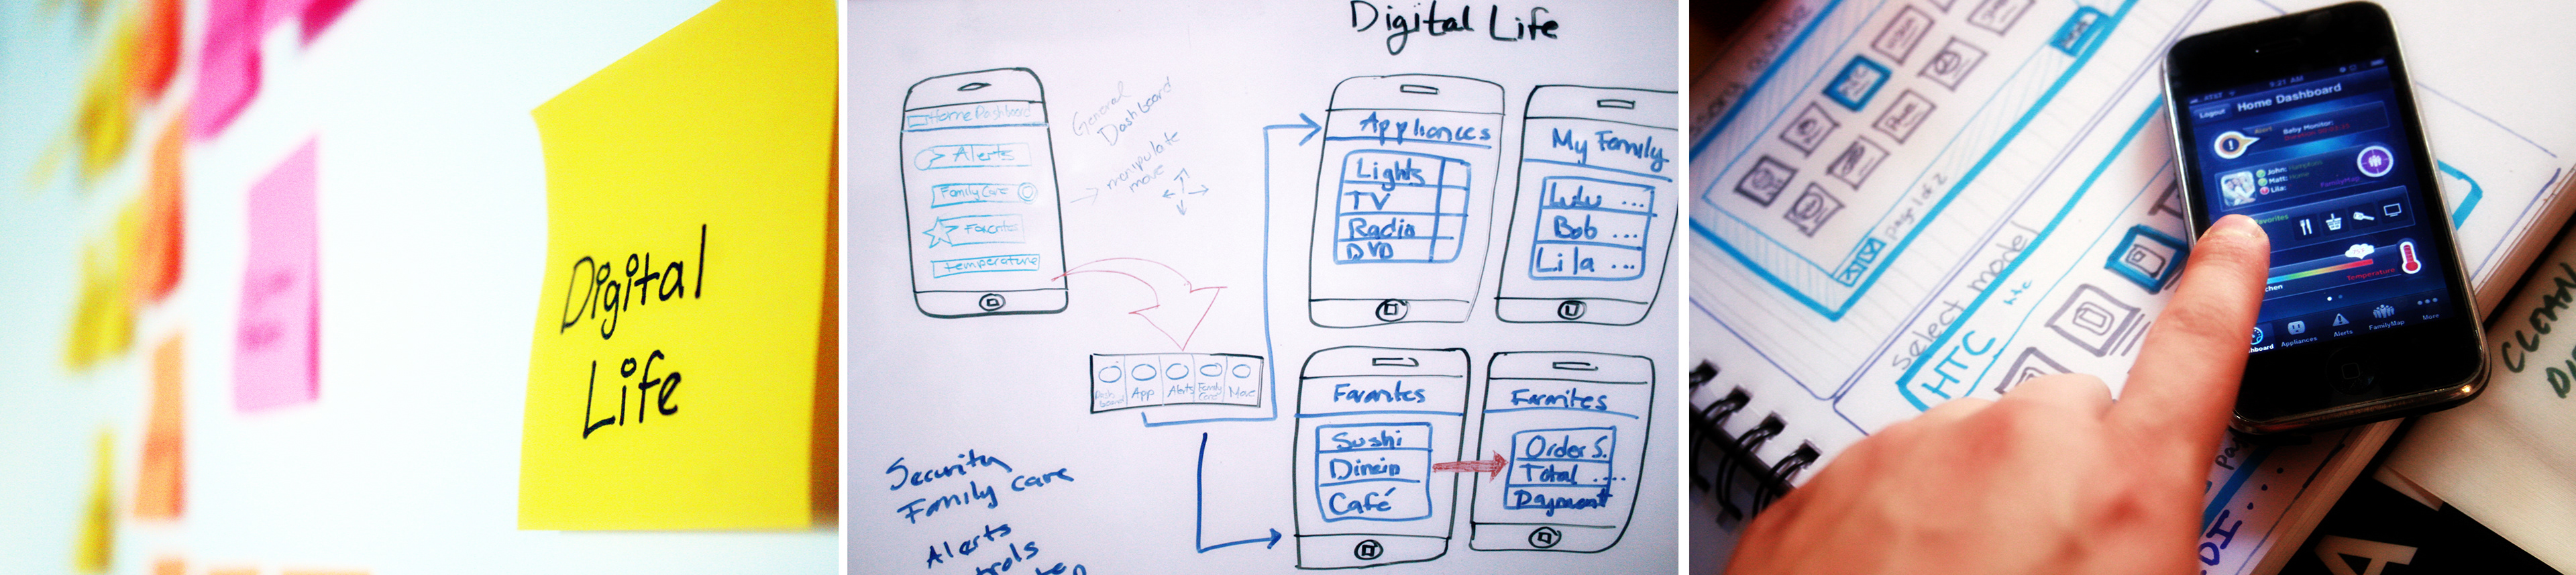 Digital
Life
Digital Life
Home Dashboard
Alerts
Family Care
Favorites
temperature
General
Dashboard
manipulate
move
App
Alerts
Family
Care
More
Security
Family care
Alerts
Appliances
Lights
TV
Radio
DVD
My Family
Lulu ...
Bob ...
Lila ...
Favorites
Sushi
Café
Favorites
Order S.
Total ....
Payment
page 1 of 2
select model
HTC
htc
AT&T
7:21 AM
Logout
Home Dashboard
Alert
Baby Monitor:
John:
Matt: Home
Lila:
FamilyMap
Favorites
Temperature
Appliances
Alerts
FamilyMap
More
CLEAN